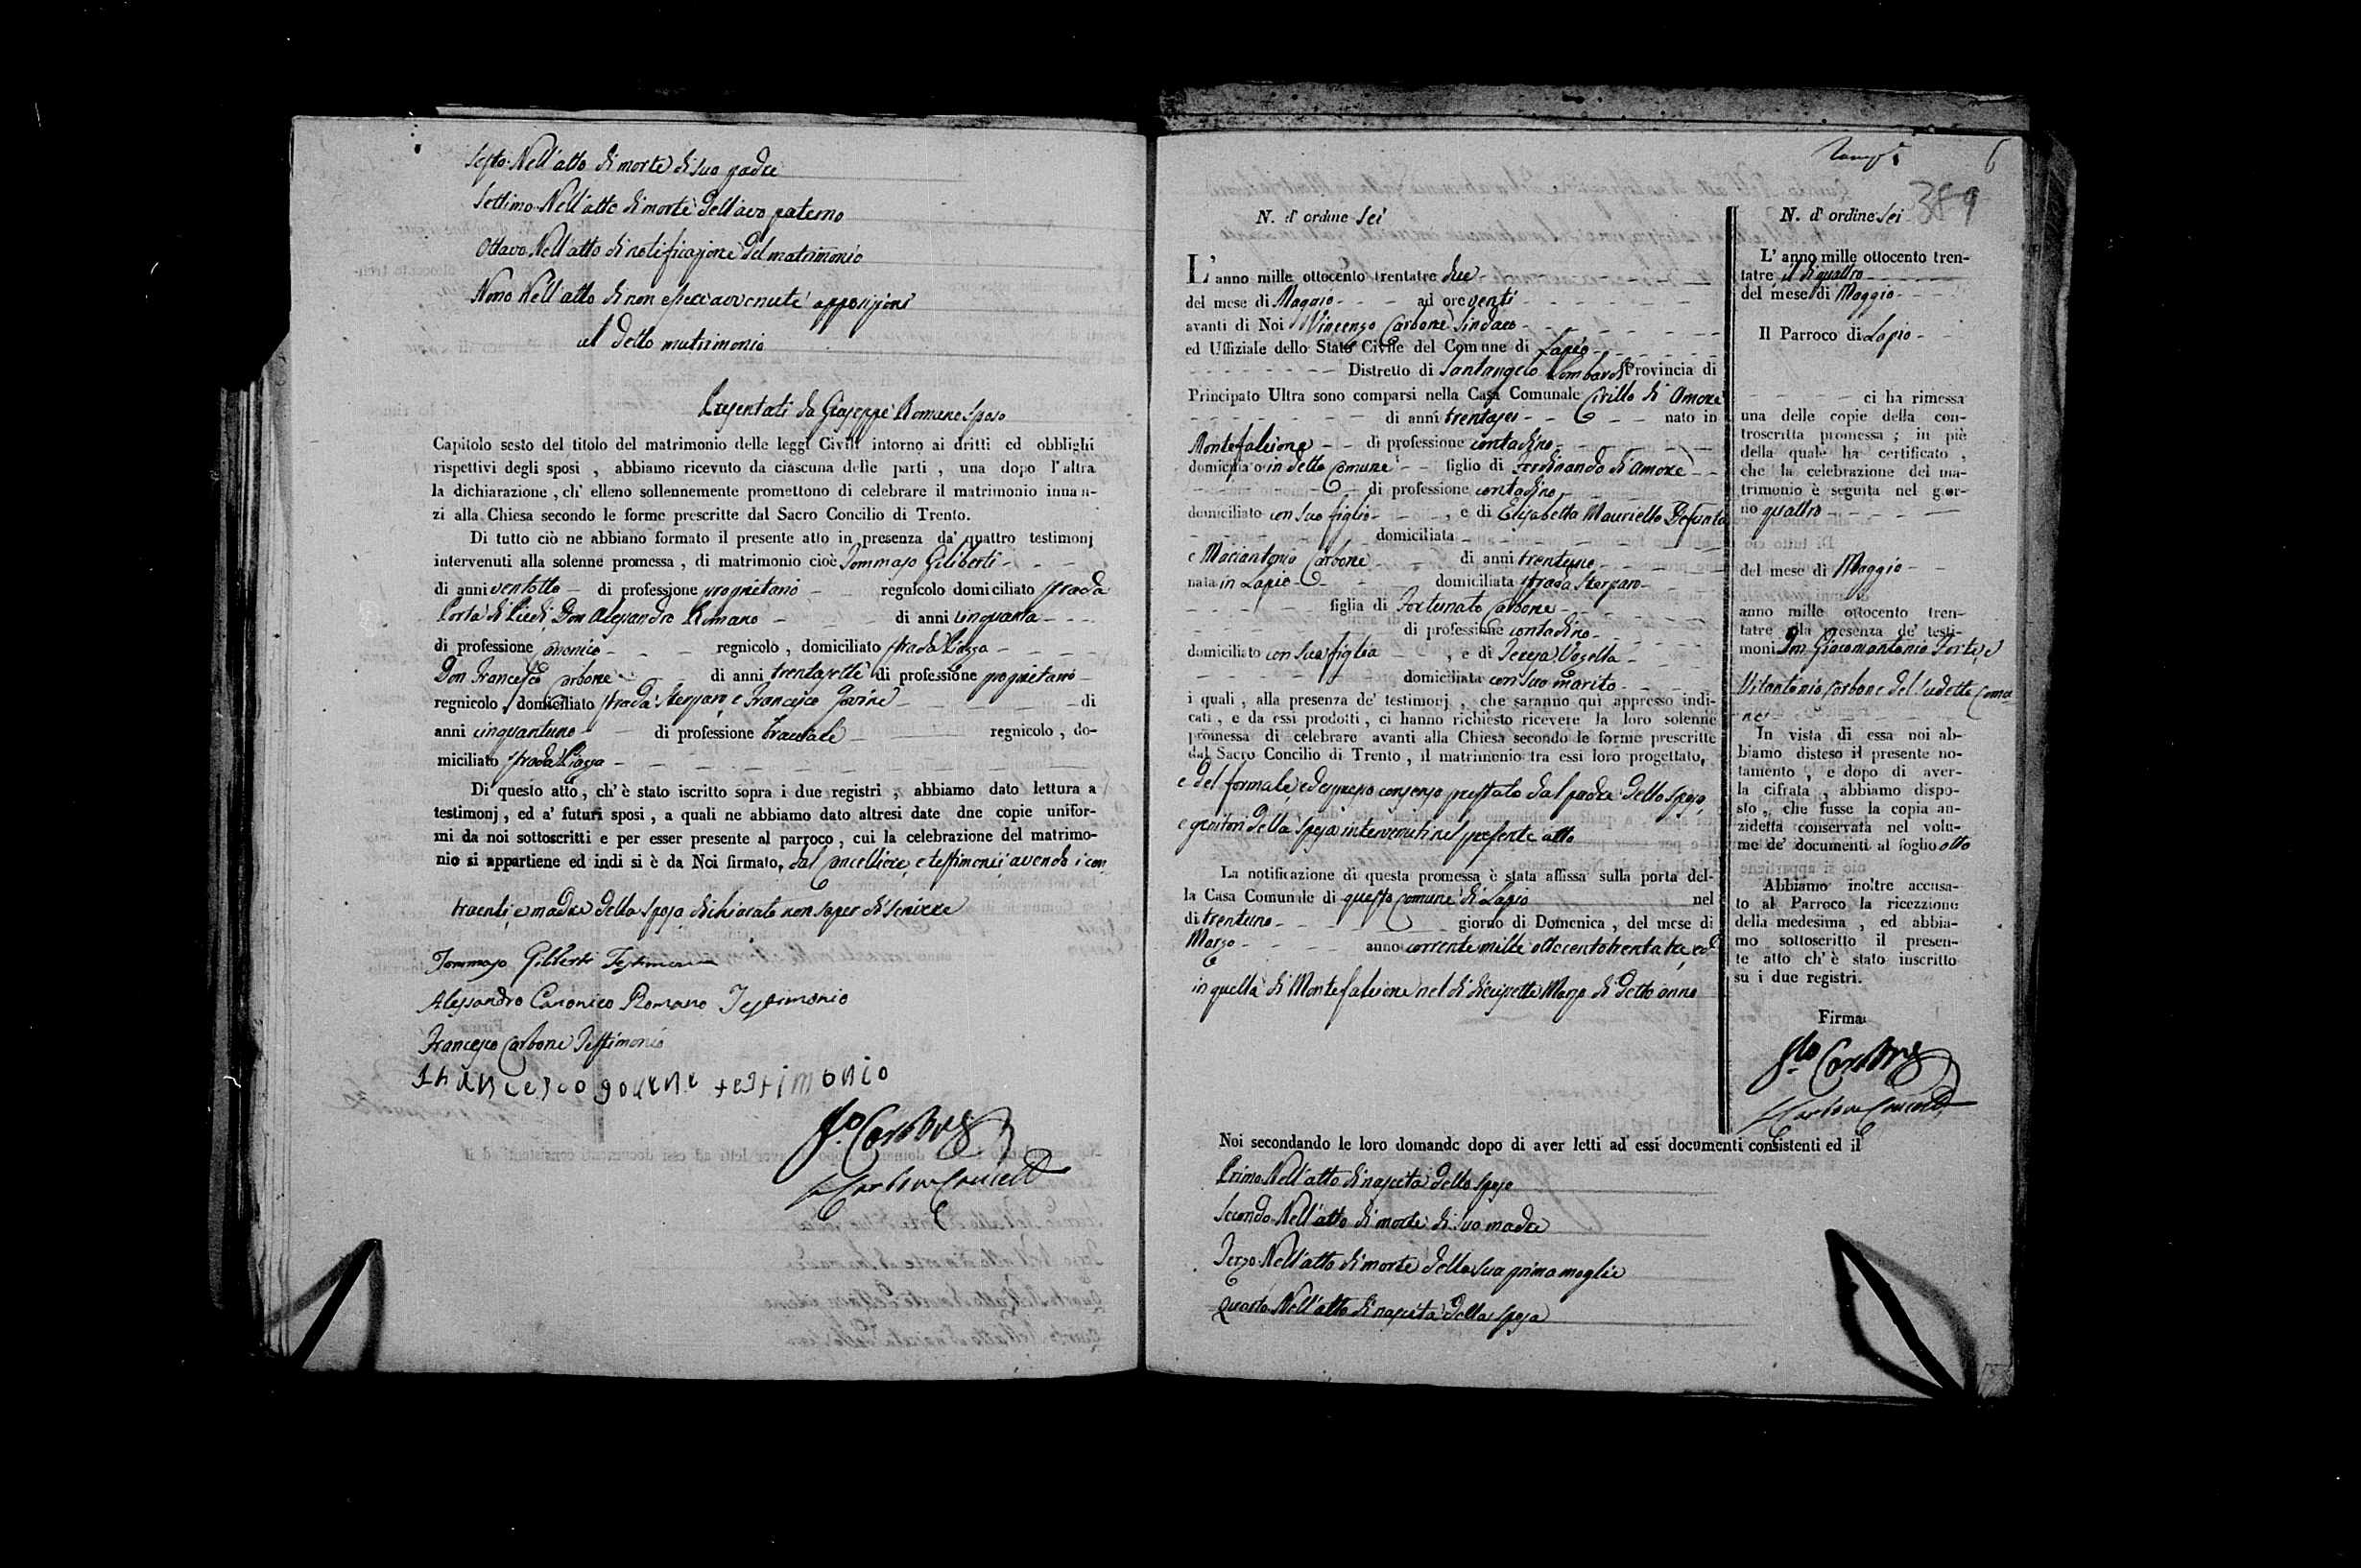 Sesto Nell'atto di morte di suo padre
Settimo Nell'atto di morte dell'avo paterno
Ottavo Nell'atto di notificazione del matrimonio
Nono Nell'atto di non esseci avvenute opposizioni
al detto matrimonio
Presentati da Giuseppe Romano sposo
Capitolo sesto del titolo del matrimonio delle leggi Civili intorno ai dritti ed obblighi
rispettivi degli sposi , abbiamo ricevuto da ciascuna delle parti , una dopo l'altra
la dichiarazione , ch' elleno sollennemente promettono di celebrare il matrimonio innan-
zi alla Chiesa secondo le forme prescritte dal Sacro Concilio di Trento.
Di tutto ciò ne abbiano formato il presente atto in presenza da' quattro testimonj
intervenuti alla solenne promessa , di matrimonio cioè Tommaso Giliberti
di anni ventotto di professione proprietario regnicolo domiciliato strada
Porta di Piedi, Don Alesandro Romano di anni cinquanta
di professione canonico regnicolo , domiciliato strada Piazza
Don Francesco Carbone di anni trentasette di professione proprietario
regnicolo , domiciliato strada Sterparo e Francesco Iovine di
anni cinquantuno di professione bracciale regnicolo , do-
miciliato strada Piazza
Di questo atto , ch' è stato iscritto sopra i due registri , abbiamo dato lettura a
testimonj , ed a' futuri sposi , a quali ne abbiamo dato altresi date dne copie unifor-
mi da noi sottoscritti e per esser presente al parroco , cui la celebrazione del matrimo-
nio si appartiene ed indi si è da Noi firmato, dal Cancelliere, e testimonii avendo i con
traenti, e madre della sposa dichiarato non saper di scrivere
Tommaso Giliberti Testimonio
Alessandro Canonico Romano Testimonio
Francesco Carbone Testimonio
Francesco govene testimonio
Carbone
Carbone Cancell
6
389
N. d' ordine Sei
L' anno mille ottocento trentatre due
del mese di Maggio ad ore venti
avanti di Noi Vincenzo Carbone Sindaco
ed Uffiziale dello Stato Civile del Comune di Lapio
Distretto di Santangelo Lombardi Provincia di
Principato Ultra sono comparsi nella Casa Comunale Cirillo di Amore
di anni trentasei nato in
Montefalcione di professione contadino
domiciliato in detto Comune figlio di Ferdinando di Amore
di professione contadino
domiciliato con suo figlio , e di Elisabetta Mauriello Defunta
domiciliata
e Mariantonia Carbone di anni trentuno
nata in Lapio domiciliata strada Sterparo
figlia di Fortunato Carbone
di professione contadino
domiciliato con sua figlia , e di Teresa Vozella
domiciliata con suo marito
i quali , alla presenza de' testimonj , che saranno qui appresso indi-
cati , e da essi prodotti , ci hanno richiesto ricevere la loro solenne
promessa di celebrare avanti alla Chiesa secondo le forme prescritte
dal Sacro Concilio di Trento , il matrimonio tra essi loro progettato,
e del formale, ed espresso consenso prestato dal padre dello sposo,
e genitori della sposa intervenuti nel presente atto
La notificazione di questa promessa è stata affissa sulla porta del-
la Casa Comunale di questo Comune di Lapio nel
di trentuno giorno di Domenica , del mese di
Marzo anno corrente mille ottocentotrentatre, ed
in quella di Montefalcione nel di diciasette Marzo di detto anno
Noi secondando le loro domande dopo di aver letti ad essi documenti consistenti ed il
Primo Nell'atto di nascita dello sposo
Secondo Nell'atto di morte di sua madre
Terzo Nell'atto di morte della sua prima moglie
Quarto Nell'atto di nascita della sposa
N. d' ordine Sei
L' anno mille ottocento tren-
tatre il di quattro
del mese di Maggio
Il Parroco di Lapio
ci ha rimessa
una delle copie della con-
troscritta promessa ; in piè
della quale ha certificato ,
che la celebrazione del ma-
trimonio è seguita nel gior-
no quattro
del mese di Maggio
anno mille ottocento tren-
tatre alla presenza de' testi-
moni Don Giacomantonio Forte, e
Vitantonio Carbone del sudetto Comu
ne
In vista di essa noi ab-
biamo disteso il presente no-
tamento , e dopo di aver-
la cifrata , abbiamo dispo-
sto , che fusse la copia an-
zidetta conservata nel volu-
me de' documenti al foglio otto
Abbiamo inoltre accusa-
to al Parroco la ricezzione
della medesima , ed abbia-
mo sottoscritto il presen-
te atto ch' è stato inscritto
su i due registri.
Firma
Carbone
Carbone Cancell